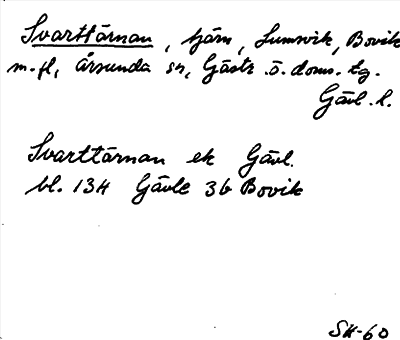 Svarttärnan, tjärn, Lumsvik, Bovik
m.fl, Årsunda sn, Gästr. ö. doms. tg.
Gävl. l.
Svarttärnan ek Gävl.
bl. 134 Gävle 3b Bovik
SH-60